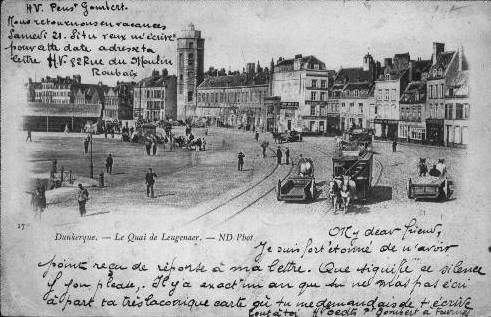 HV. Pens<sup>t</sup> Gombert.
Nous retournons en vacances
Samedi 21. Si tu veux m'écrire
pour cette date adresse ta
lettre HV 82 Rue du Moulin
Roubaix
17
Dunkerque. — Le Quai de Leugenaer. — ND Phot
My dear friend,
Je suis fort étonné de n'avoir
point reçu de réponse à ma lettre. Que signifie ce silence
if you please,. Il y a exact<sup>t</sup> un an que tu ne m'as pas écri
à part ta très laconique carte où tu me demandais de t'écrire
tout à toi H Voedts P<sup>t</sup> Gombert à Fournes